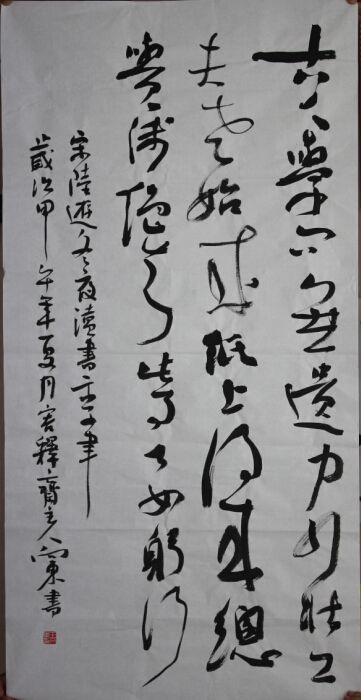 古人學問無遺力少壯工
夫老始成紙上得來總
覺淺絕知此事要躬行
宋陸遊冬夜讀書示子聿
歲次甲午年夏月釋齋主人東書